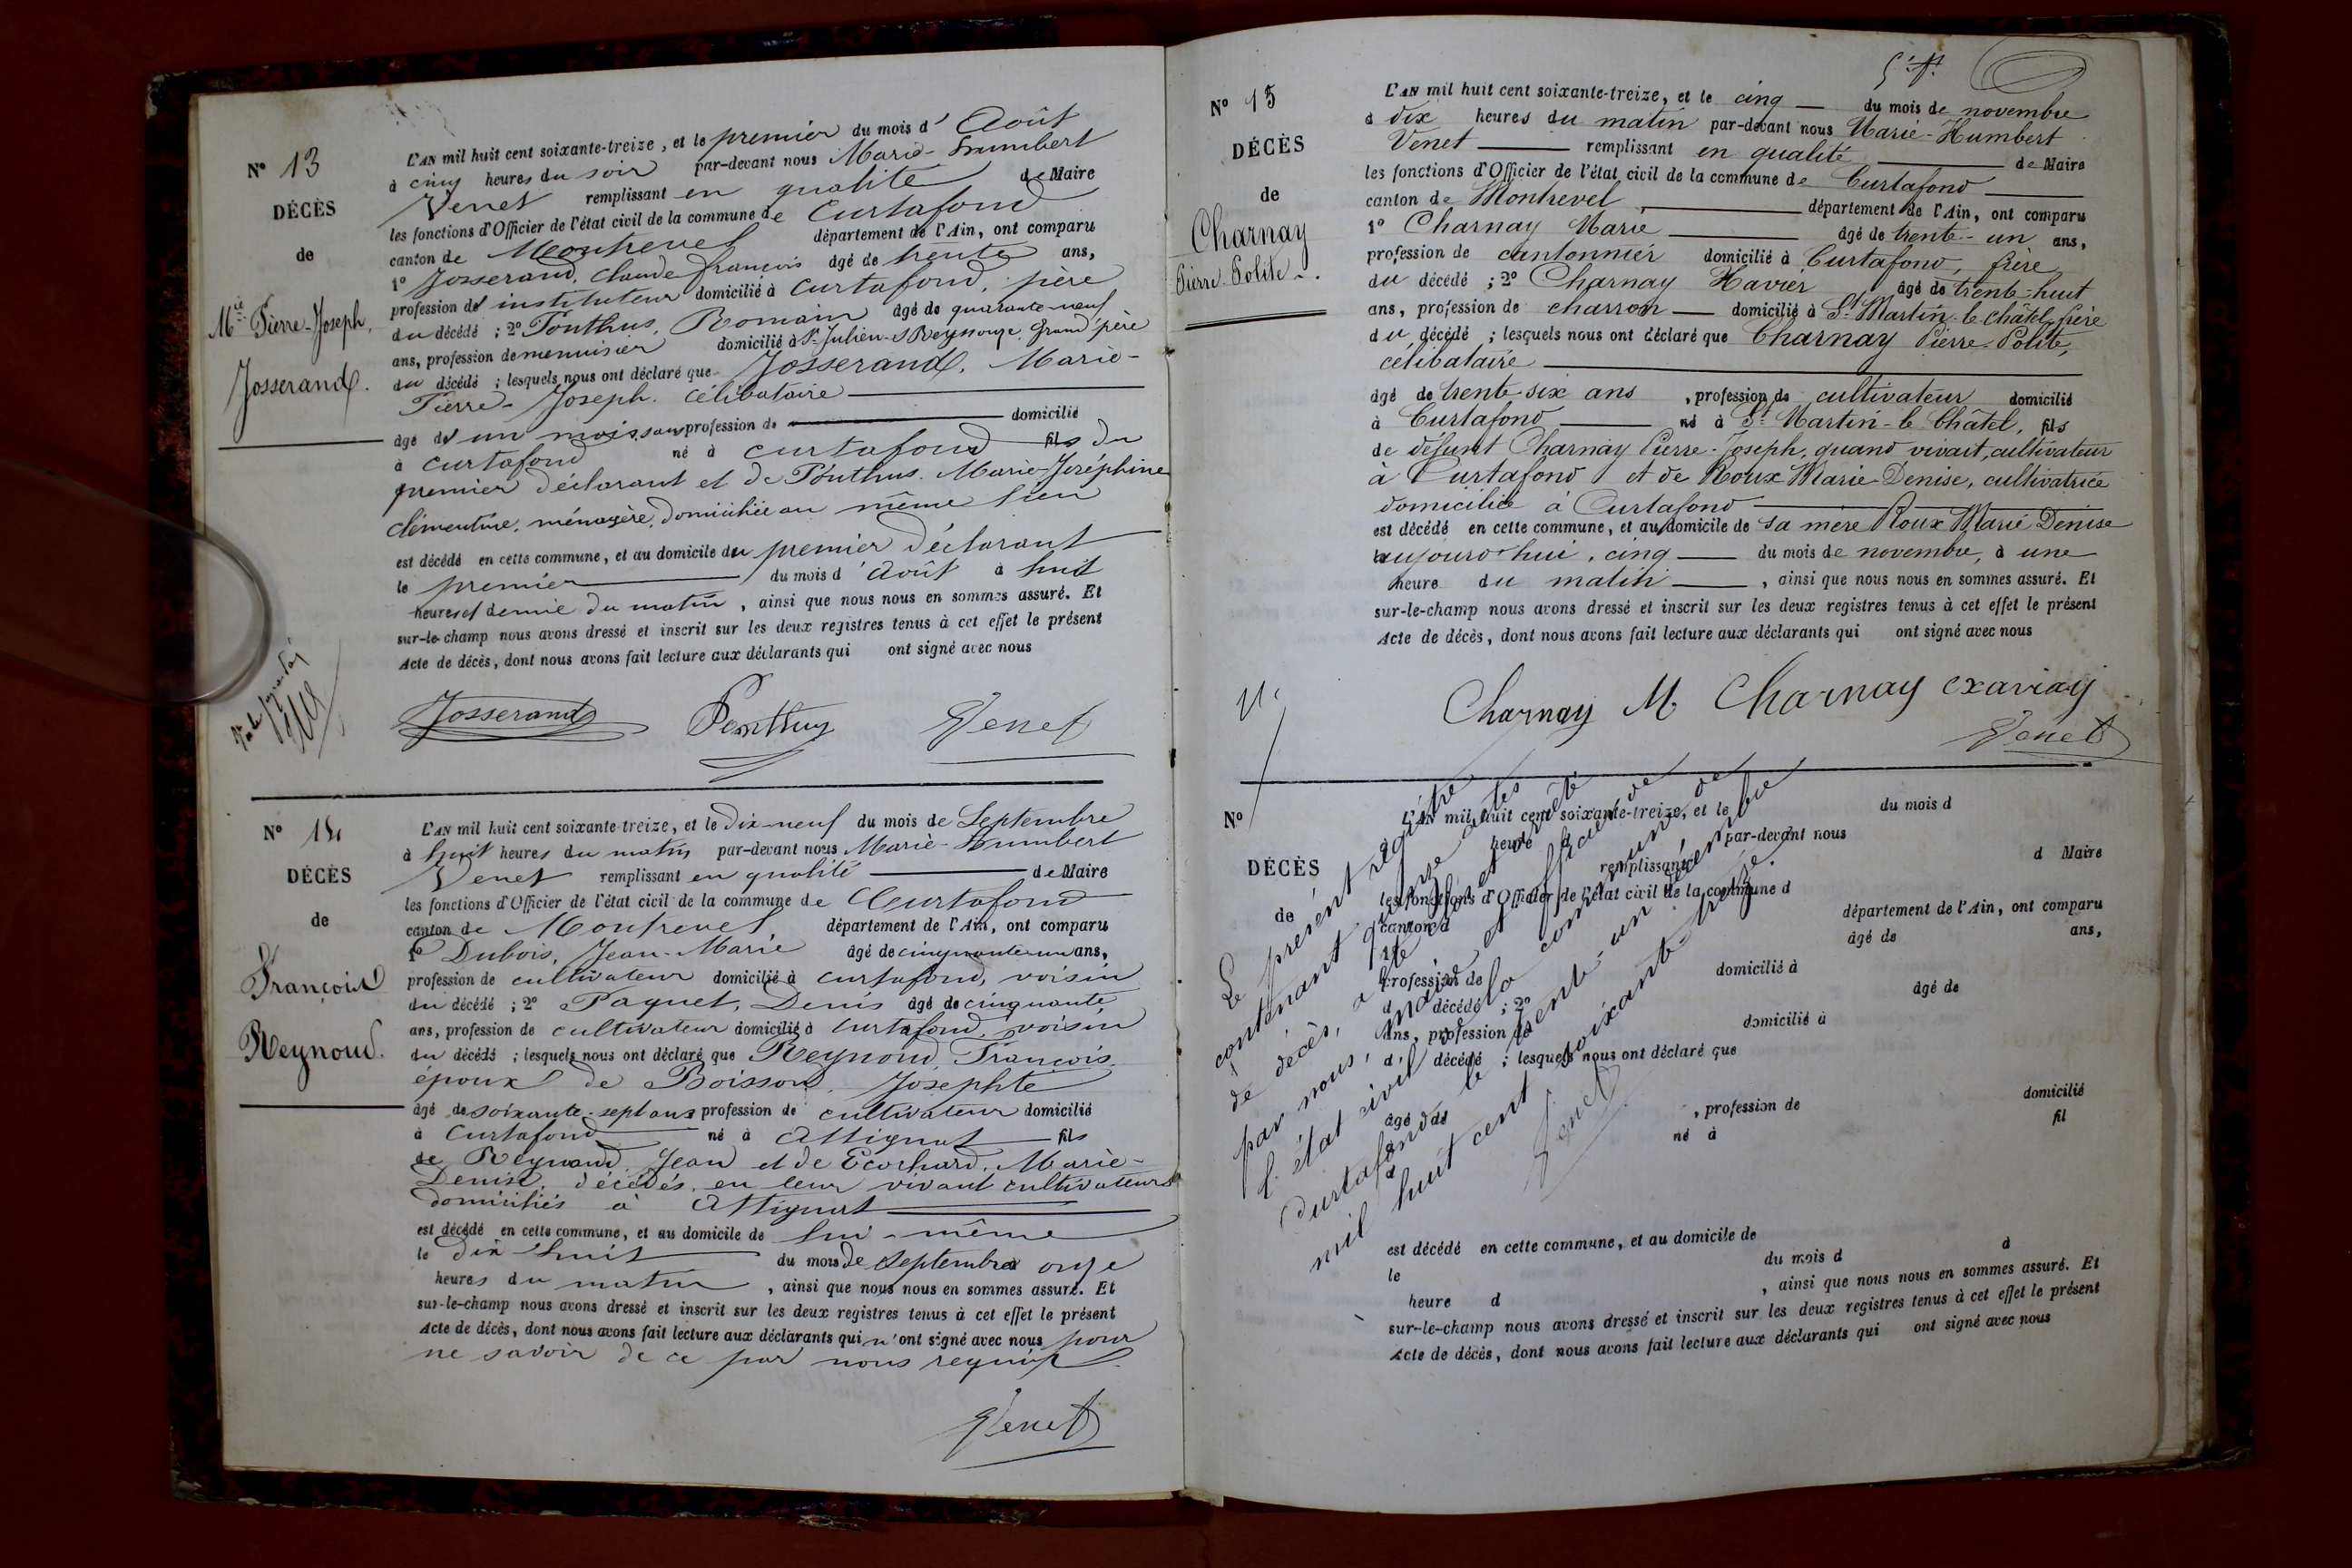 N° 13
DÉCÈS
de
Mie Pierre-Joseph
Josserand.
L'AN mil huit cent soixante-treize, et le premier du mois d'Août
à cinq heures du soir par-devant nous Marie-Humbert
Venet remplissant en qualité de Maire
les fonctions d'Officier de l'état civil de la commune de Curtafond
canton de Montrevel département de l'Ain, ont comparu
1° Josserand, Claude François âgé de trente ans,
profession d' instituteur domicilié à Curtafond, père
du décédé ; 2° Ponthus, Romain âgé de quarante-neuf
ans, profession de menuisier domicilié à St Julien-s-Reyssouze Grand père
du décédé ; lesquels nous ont déclaré que Josserand, Marie-
Pierre-Joseph. célibataire
âgé d' un mois, sans profession de domicilié
à Curtafond né à Curtafond fils du
premier déclarant et de Ponthus Marie-Joséphine
Clémentine, ménagère, domiciliée au même lieu
est décédé en cette commune, et au domicile du premier déclarant
le premier du mois d'Août à huit
heures et demie du matin, ainsi que nous nous en sommes assuré. Et
sur-le-champ nous avons dressé et inscrit sur les deux registres tenus à cet effet le présent
Acte de décès, dont nous avons fait lecture aux déclarants qui ont signé avec nous
Josserand Ponthus Venet
N° 14
DÉCÈS
de
François
Reynoud.
L'AN mil huit cent soixante-treize, et le Dix-neuf du mois de Septembre
à huit heures du matin par-devant nous Marie-Humbert
Venet remplissant en qualité de Maire
les fonctions d'Officier de l'état civil de la commune de Curtafond
canton de Montrevel département de l'Ain, ont comparu
1° Dubois, Jean-Marie âgé de cinquante un ans,
profession de cultivateur domicilié à Curtafond, voisin
du décédé ; 2° Paquet, Denis âgé de cinquante
ans, profession de cultivateur domicilié à Curtafond, voisin
du décédé ; lesquels nous ont déclaré que Reynoud, François
époux de Boisson, Josephte
âgé de soixante-sept ans profession de cultivateur domicilié
à Curtafond né à Attignat fils
de Reynoud, Jean et de Ecochard, Marie-
Denise, décédés, en leur vivant cultivateurs
domiciliés à Attignat
est décédé en cette commune, et au domicile de lui-même
le dix huit du mois de Septembre à onze
heures du matin, ainsi que nous nous en sommes assuré. Et
sur-le-champ nous avons dressé et inscrit sur les deux registres tenus à cet effet le présent
Acte de décès, dont nous avons fait lecture aux déclarants qui n'ont signé avec nous pour
ne savoir de ce par nous requis
Venet
N° 15
DÉCÈS
de
Charnay
Pierre-Polite
L'AN mil huit cent soixante-treize, et le cinq du mois de novembre
à dix heures du matin par-devant nous Marie-Humbert
Venet remplissant en qualité de Maire
les fonctions d'Officier de l'état civil de la commune de Curtafond
canton de Montrevel, département de l'Ain, ont comparu
1° Charnay Marie âgé de trente-un ans,
profession de cantonnier domicilié à Curtafond, frère
du décédé ; 2° Charnay Xavier âgé de trente-huit
ans, profession de charron domicilié à St Martin-le-Châtel frère
du décédé ; lesquels nous ont déclaré que Charnay Pierre-Polite,
célibataire
âgé de trente-six ans, profession de cultivateur domicilié
à Curtafond né à St Martin-le Châtel, fils
de défunt Charnay Pierre-Joseph, quand vivait, cultivateur
à Curtafond et de Roux Marie-Denise, cultivatrice
domiciliée à Curtafond
est décédé en cette commune, et au domicile de sa mère Roux Marie Denise
aujourd'hui, cinq du mois de novembre, à une
heure du matin, ainsi que nous nous en sommes assuré. Et
sur-le-champ nous avons dressé et inscrit sur les deux registres tenus à cet effet le présent
Acte de décès, dont nous avons fait lecture aux déclarants qui ont signé avec nous
Charnay M Charnay exaviay
Venet
N°
DÉCÈS
de
L'AN mil huit cent soixante-treize, et le du mois d
heure d par-devant nous
remplissant d Maire
les fonctions d'Officier de l'état civil de la commune d
canton d département de l'Ain, ont comparu
1° âgé de ans,
profession de domicilié à
d décédé ; 2° âgé de
ans, profession de domicilié à
d décédé ; lesquels nous ont déclaré que
âgé de , profession de domicilié
à né à fil
est décédé en cette commune, et au domicile de
le du mois d à
heure d , ainsi que nous nous en sommes assuré. Et
sur-le-champ nous avons dressé et inscrit sur les deux registres tenus à cet effet le présent
Acte de décès, dont nous avons fait lecture aux déclarants qui ont signé avec nous
Le présent registre
contenant quinze actes
de décès, a été clos et arrêté
par nous, maire et officier de
l'état civil de la commune de
Curtafond le trente-un décembre
mil huit cent soixante-treize.
Venet